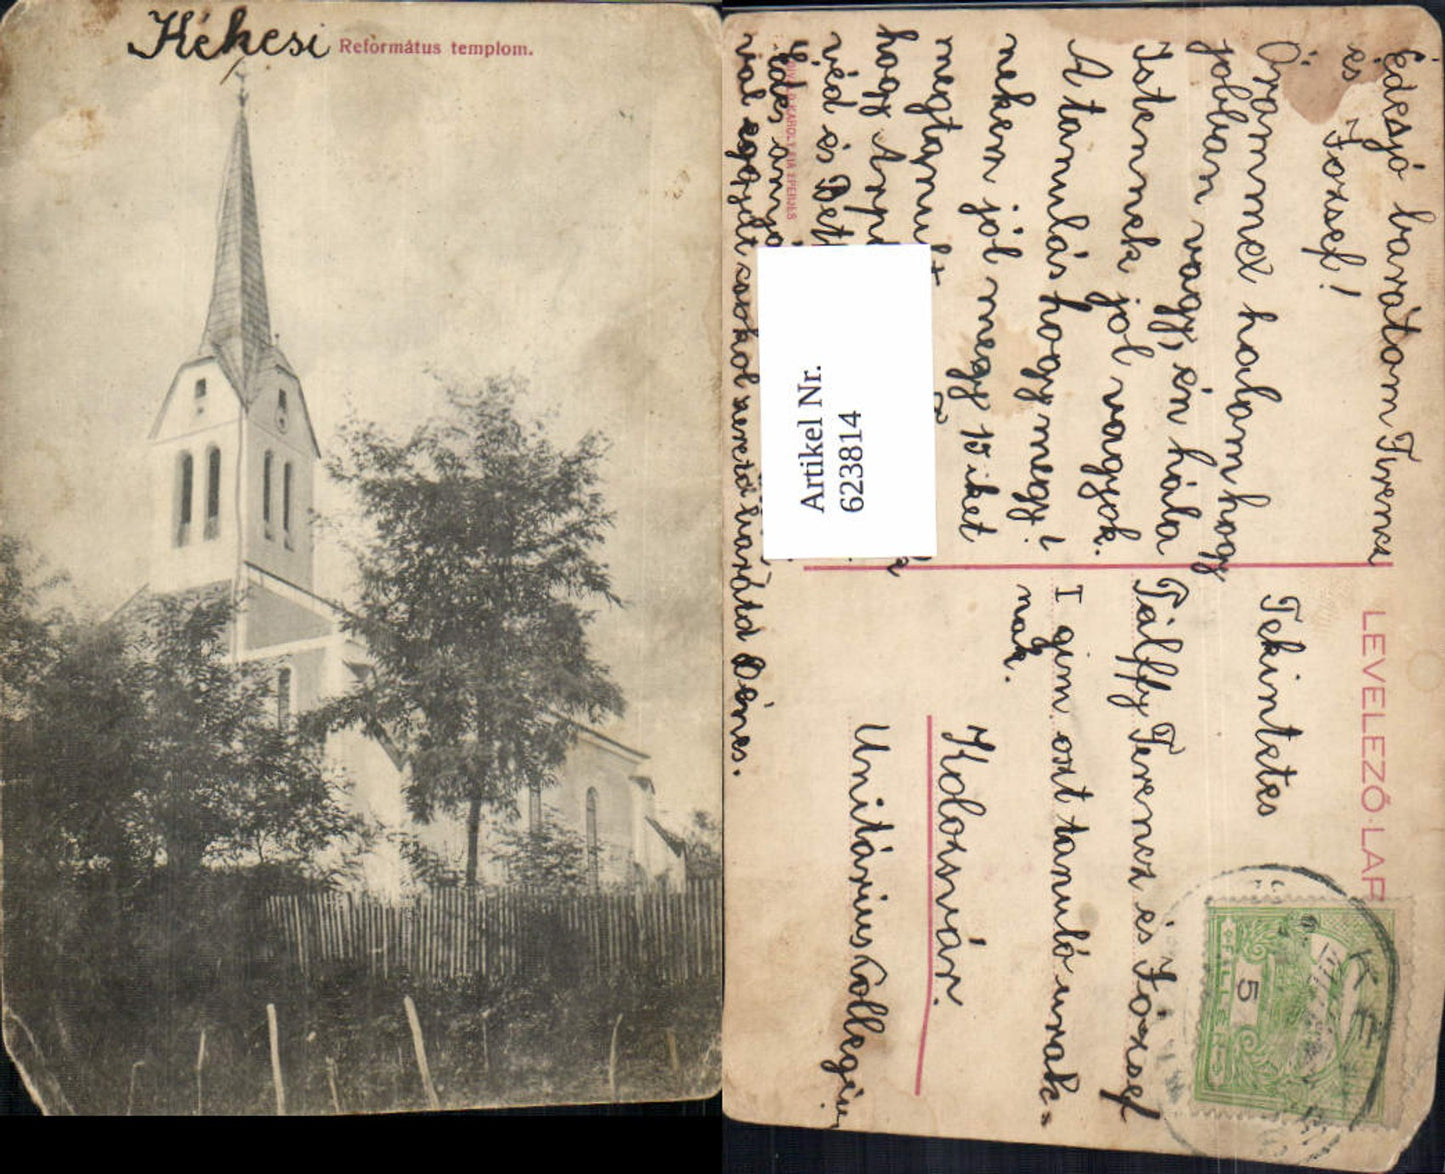 Kékesi Református templom.
Édesjó barátom Ferencz
és József!
Örömmel halom hogy
jobban vagy, én hála
Istennek jól vagyok.
A tanulás hogy megy!
nekem jól megy 15 iket
megtanult
hogy Árp
véd és Bet
édes anyá
val együtt csokol szerető barátd Dénes.
DIVALD KÁROLY FIA EPERJES
Artikel Nr.
623814
LEVELEZŐ-LAP
Tekintetes
Pálffy Ferencz és József
I gim. oszt tanuló urak=
nak.
Kolozsvár.
Unitárius Collegium
5
FILLÉR